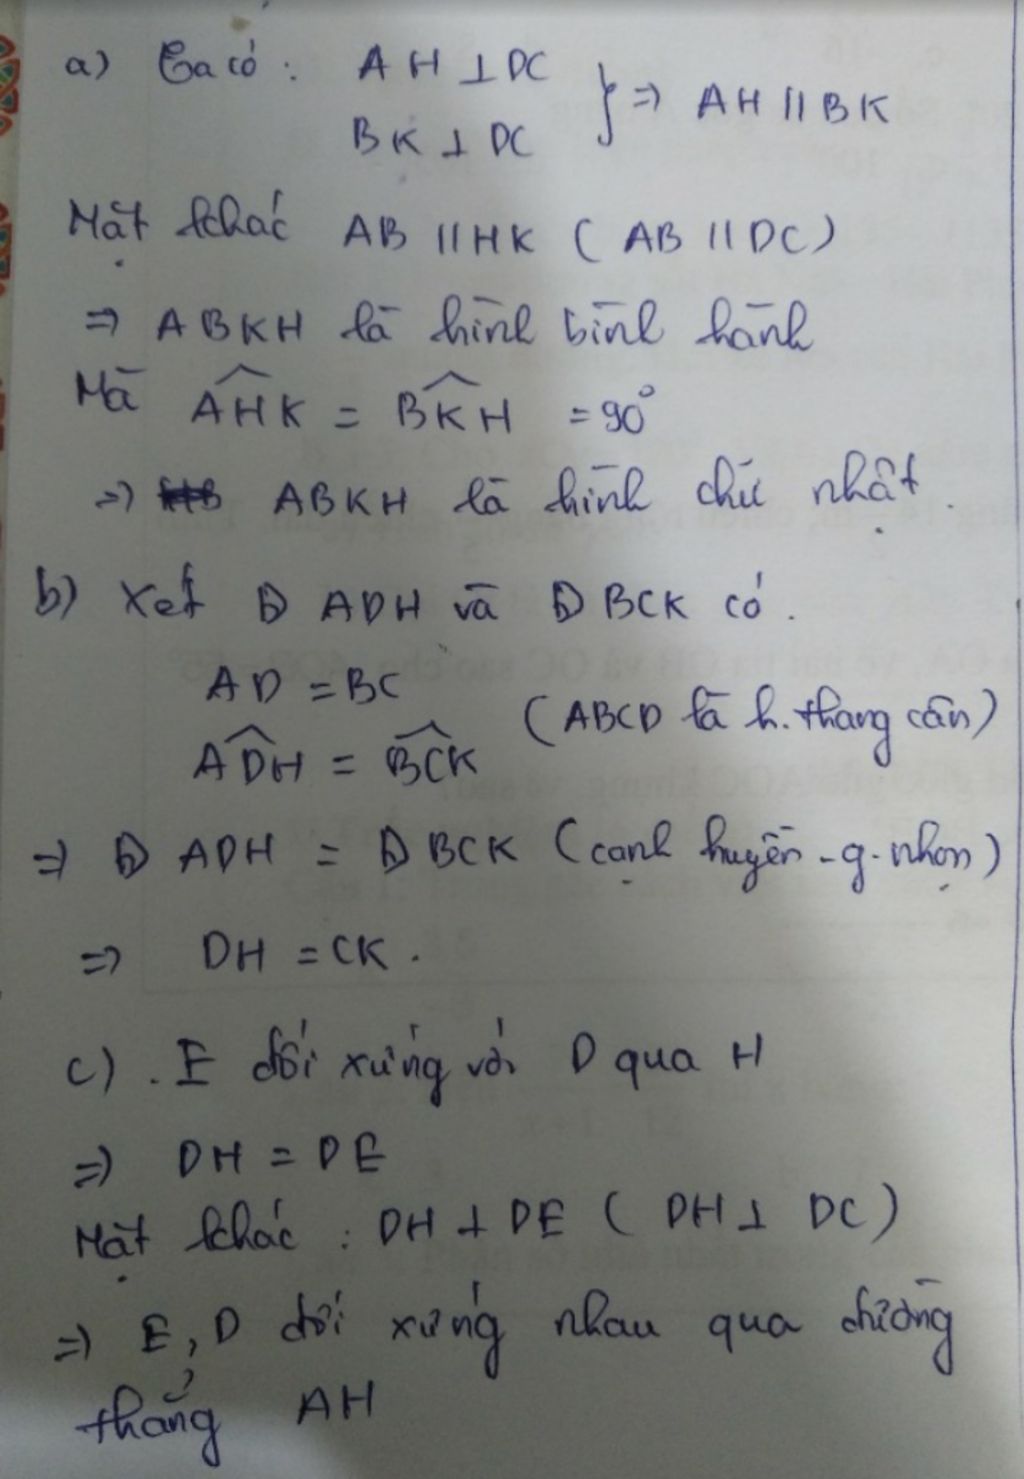 a) Ta có : AH ⊥ DC
BK ⊥ DC } => AH // BK
Mặt khác AB // HK ( AB // DC )
=> ABKH là hình bình hành
Mà AHK = BKH = 90°
=> ABKH là hình chữ nhật .
b) Xét Δ ADH và Δ BCK có .
AD = BC
ADH = BCK (ABCD là h.thang cân)
=> Δ ADH = Δ BCK (cạnh huyền - g.nhọn)
=> DH = CK .
c) . E đối xứng với D qua H
=> DH = DE
Mặt khác : DH ⊥ DE ( DH ⊥ DC )
=> E, D đối xứng nhau qua đường
thẳng AH